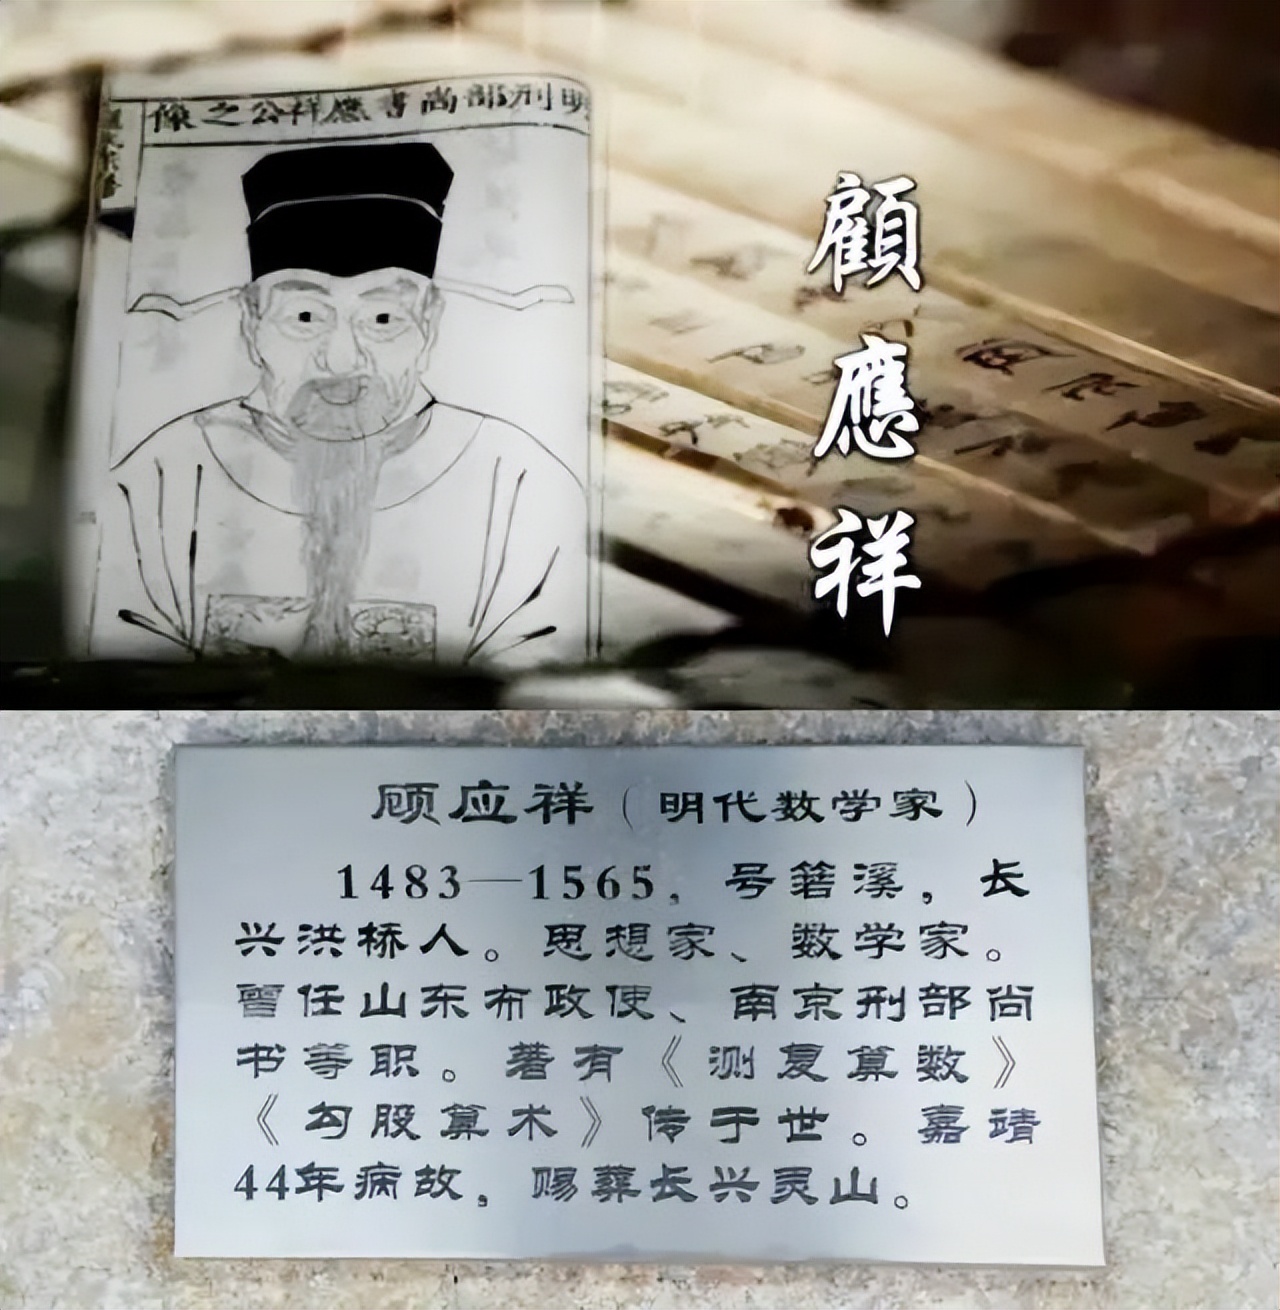 明刑部尚書應祥公之像
顧應祥
顾应祥（明代数学家）
1483—1565，号箬溪，长
兴洪桥人。思想家、数学家。
曾任山东布政使、南京刑部尚
书等职。著有《测复算数》
《勾股算术》传于世。嘉靖
44年病故，赐葬长兴灵山。